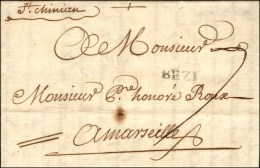 St. chinien
A Monsieur
BEZI
Monsieur Pre. honoré Roux
A marseille